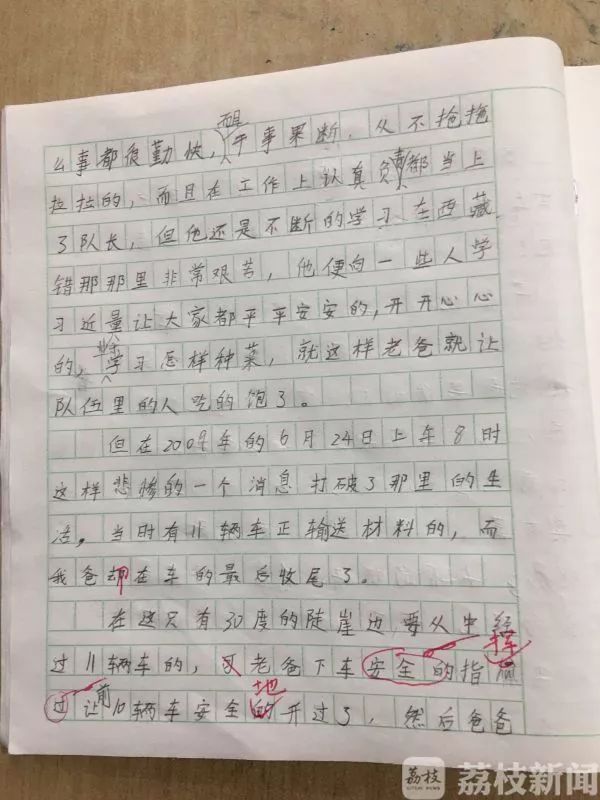 而且
么事都很勤快，干事果断，从不拖拖
拉拉的，而且在工作上认真负责都当上
了队长，但他还是不断的学习在西藏
错那那里非常艰苦，他便向一些人学
习近量让大家都平平安安的，开开心心
的，学习怎样种菜，就这样老爸就让
队伍里的人吃的饱了。
但在2009年的6月24日上午8时
这样悲惨的一个消息打破了那里的生
活，当时有11辆车正输送材料的，而
我爸却在车的最后收尾了。
在这只有30度的陡崖边要从中经
挥
过11辆车的，老爸下车安全的指
地
过让前10辆车安全的开过了，然后爸爸
荔枝
荔枝新闻